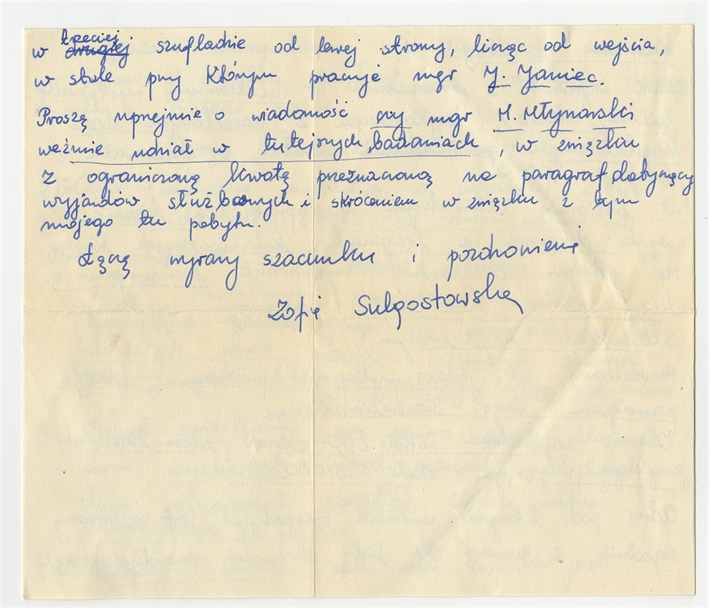 trzeciej
w drugiej szufladzie od lewej strony, licząc od wejścia,
w stole przy którym pracuje mgr J. Janiec.
Proszę uprzejmie o wiadomość czy mgr M. Młynarski
weźmie udział w tutejszych badaniach, w związku
z ograniczoną kwotą przeznaczoną na paragraf dotyczący
wyjazdów służbowych i skróceniem w związku z tym
mojego tu pobytu.
Łączę wyrazy szacunku i pozdrowienia
Zofia Sulgostowska